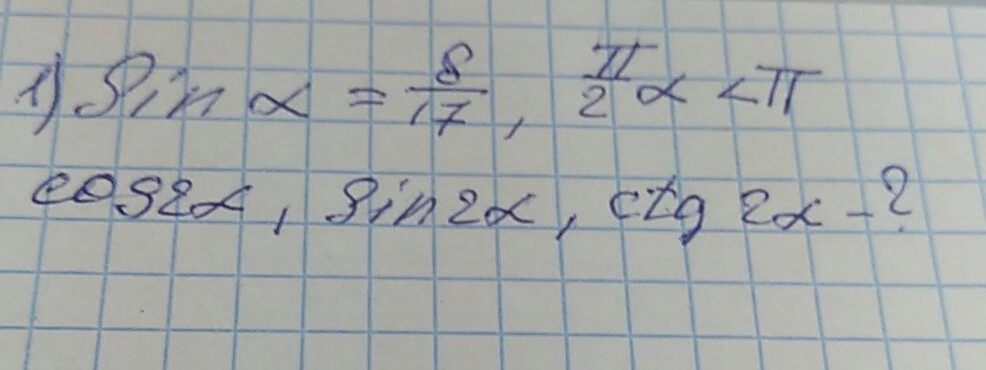 1) Sin α = 8/17, π/2 α < π
cos2α, sin2α, ctg 2α - ?